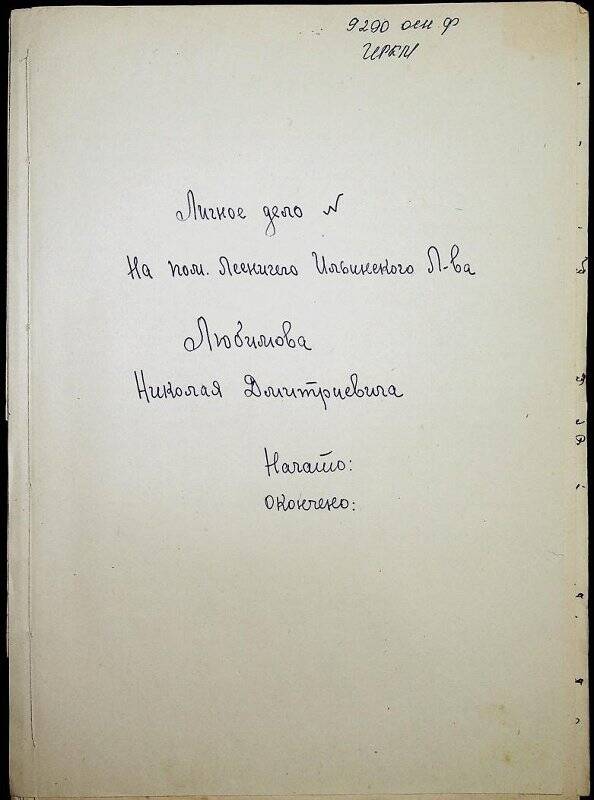 9290 осн ф
ИРКМ
Личное дело №
На пом. Лесничего Ильинского Л-ва
Любимова
Николая Дмитриевича
Начато:
Окончено: